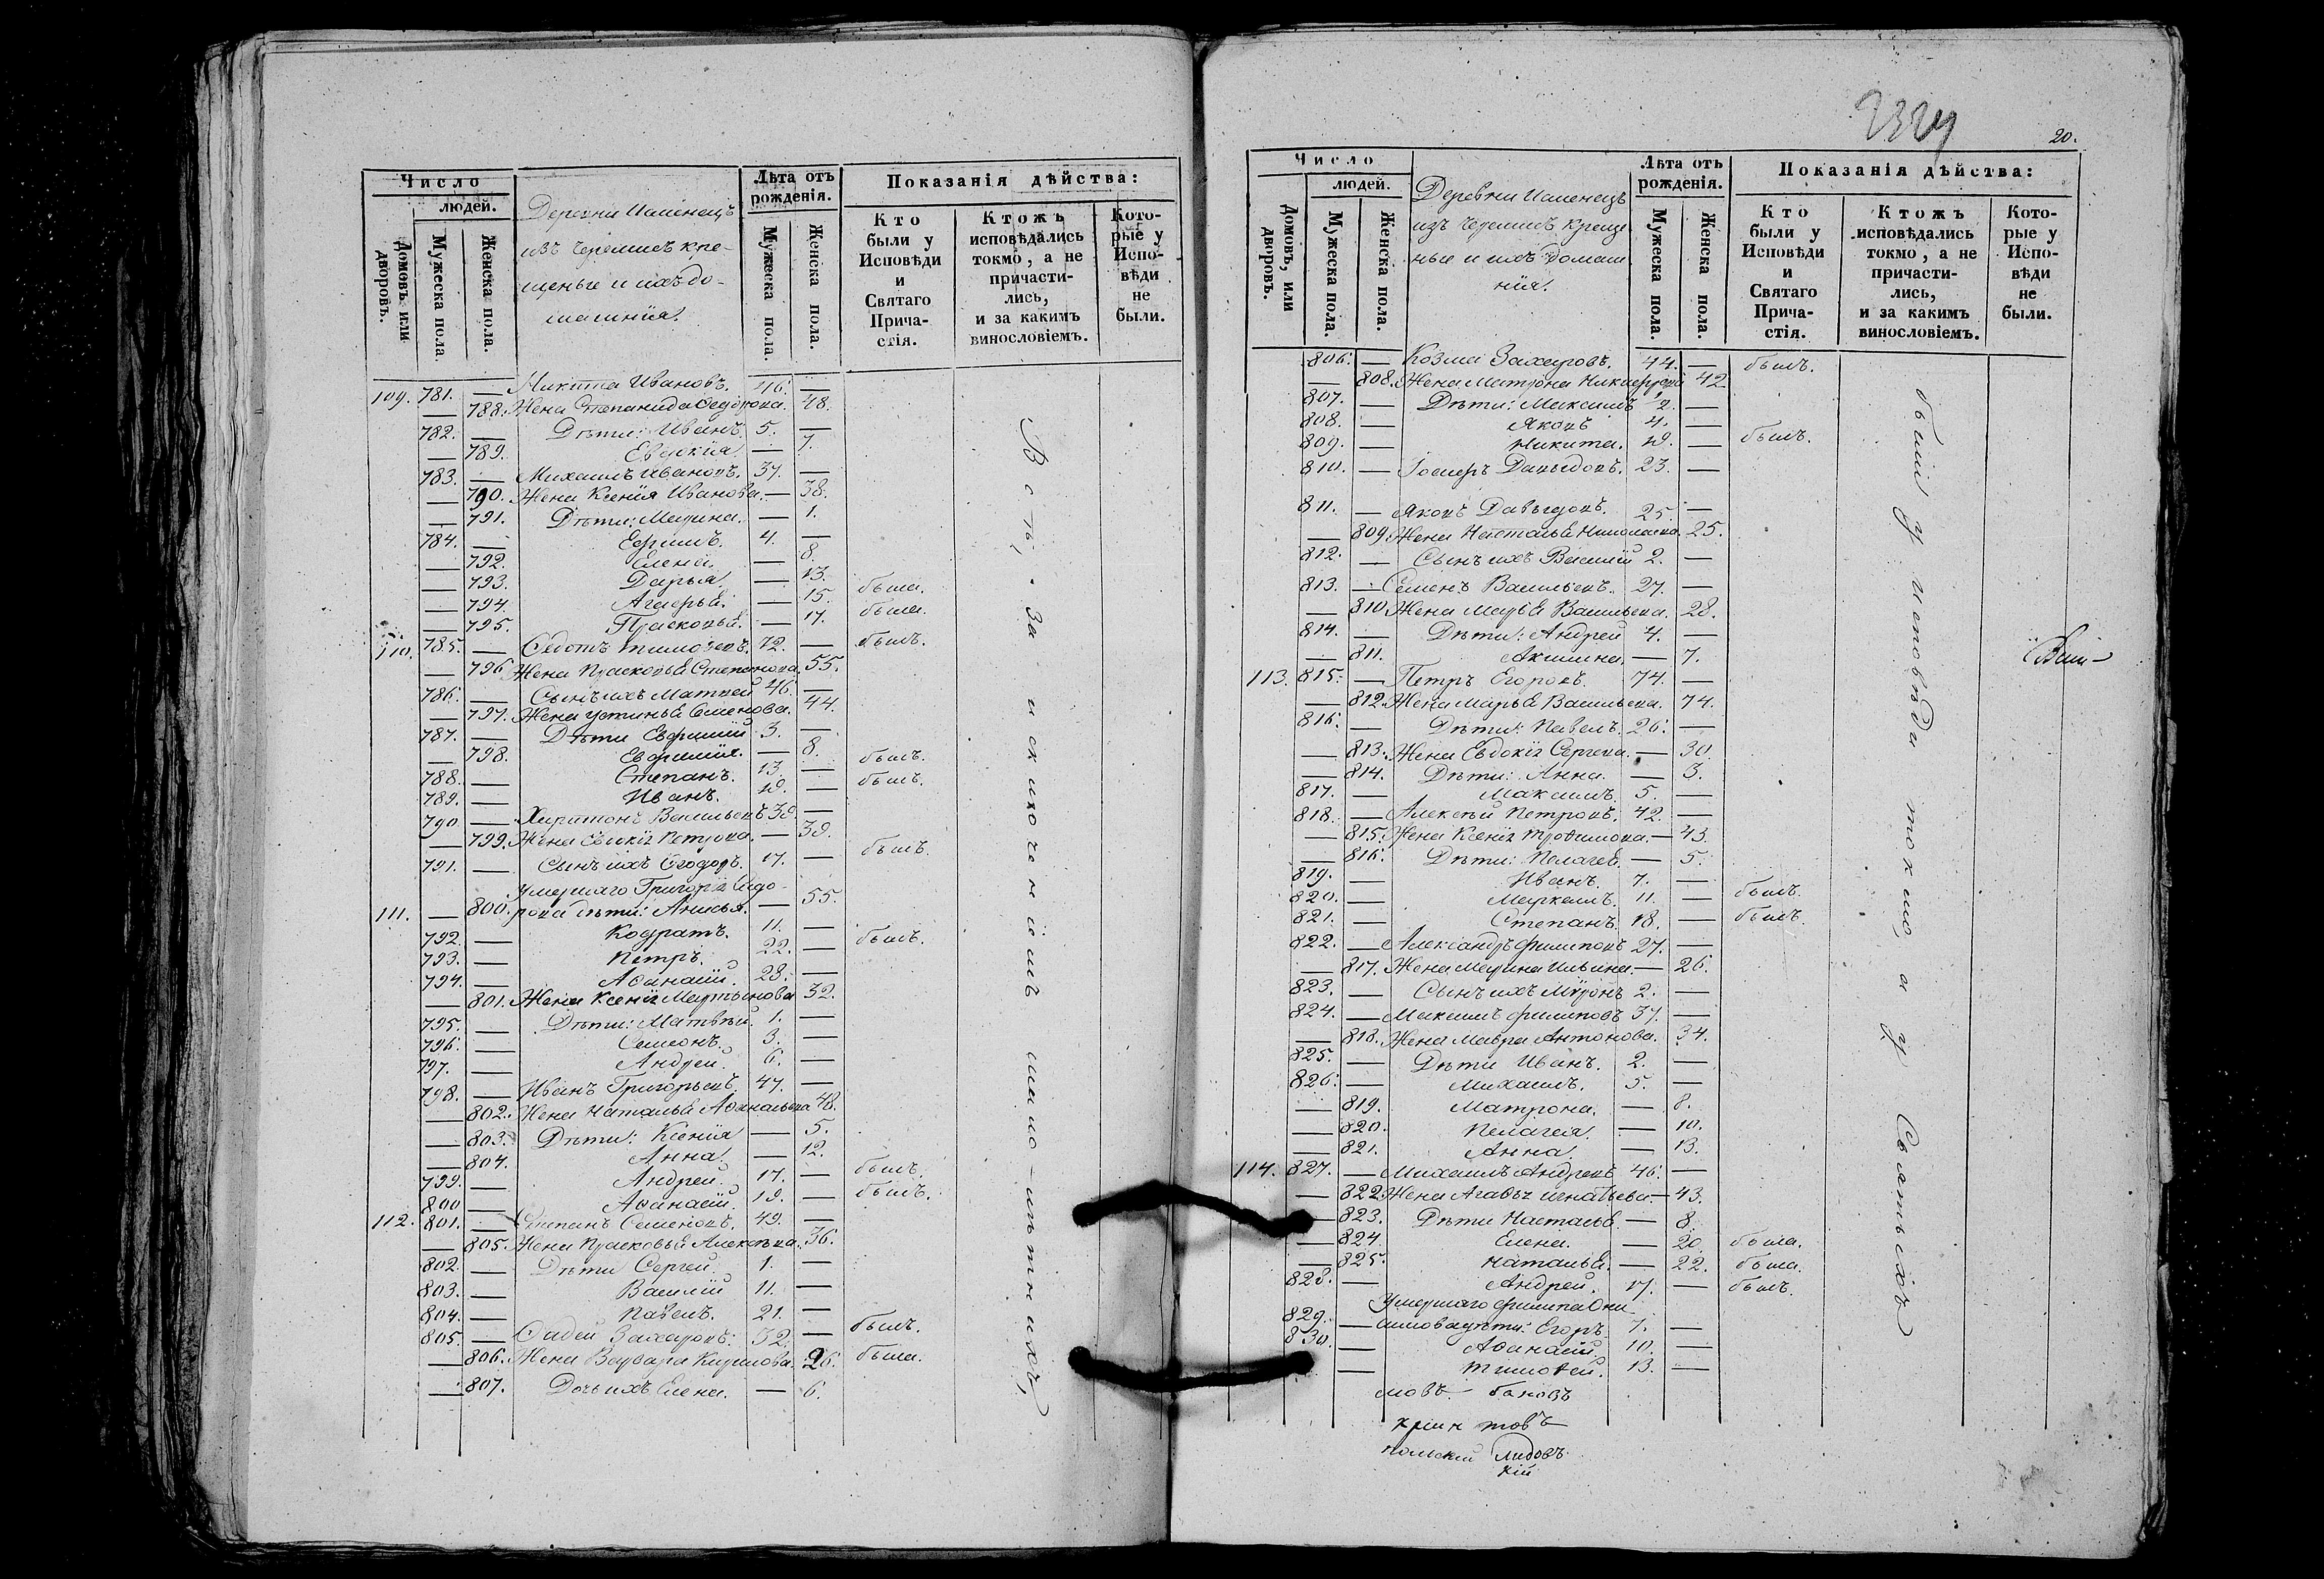 Число
людей.
Домовъ или дворовъ.
Мужеска пола.
Женска пола.
Деревни
изъ Черемисъ кре-
щеные и ихъ до-
машнія.
Лѣта отъ рожденія.
Мужеска пола.
Женска пола.
Показанія дѣйства:
Кто были у Исповѣди и Святаго Прича- стія.
Ктожъ исповѣдались токмо, а не причасти- лись, и за какимъ винословіемъ.
Кото- рые у Испо- вѣди не были.
109. 781. — Никита Ивановъ. 46. —
— 788. Жена Степанида Ѳедорова. 48.
782. — Дѣти: Иванъ. 5. —
— 789. Евдокія. — 7.
783. — Михаилъ Ивановъ. 37. —
— 790. Жена Ксенія Иванова. — 38.
— 791. Дѣти: Марина. — 1.
784. — Ефимъ. 4. —
— 792. Елена. — 8.
— 793. Дарья. — 13.
— 794. — 15. была.
— 795. Прасковья. — 17. была.
110. 785. — Ѳедотъ Тимоѳеевъ. 72. — былъ.
— 796. Жена Прасковья Степанова. 55.
786. — Сынъ ихъ Матвей 46. —
— 797. Жена Устинья Семенова. 44.
787. — Дѣти Евфимій 3. —
— 798. Евфимія. — 8.
788. — Степанъ. 13. — былъ.
789. — Иванъ. 19. — былъ.
790. — Харитонъ Васильевъ 39. —
— 799. Жена Петрова. — 39.
791. — Сынъ ихъ Ѳеодоръ. 17. — былъ.
Умершаго Григорія Сидо-
111. — 800. рова дѣти: Анисья. — 55.
792. — Кодратъ. 11. —
793. — Петръ. 22. — былъ.
794. — Аѳанасій. 28. —
— 801. Жена Ксенія Мартынова 32.
795. — Дѣти: Матвѣй. 1. —
796. — Семеонъ. 3. —
797. — Андрей. 6. —
798. — Иванъ Григорьевъ. 47. —
— 802. Жена Наталья Аѳанасьева 48.
— 803. Дѣти: Ксенія — 5.
— 804. Анна. — 12.
799. — Андрей. 17. — былъ.
800 — Аѳанасій. 19. — былъ.
112. 801. — Степанъ Семеновъ. 49. —
— 805. Жена Прасковья Алексѣева. 36.
802. — Дѣти Сергей. 1. —
803. — Василій 11. —
804. — Павелъ. 21. —
805. — Ѳадей Захаровъ. 32. — былъ.
— 806. Жена Варвара Кирилова. 26. была.
— 807. Дочь ихъ Елена. — 6.
Всѣ, за исключеніемъ мало-лѣтнихъ,
20.
Число
людей.
Домовъ, или дворовъ.
Мужеска пола.
Женска пола.
Деревни
изъ Черемисъ креще
ные и ихъ домаш
нія.
Лѣта отъ рожденія.
Мужеска пола.
Женска пола.
Показанія дѣйства:
Кто были у Исповѣди и Святаго Прича- стія.
Ктожъ исповѣдались токмо, а не причасти- лись, и за какимъ винословіемъ.
Кото- рые у Испо- вѣди не были.
806. — Козма Захаровъ. 44. — былъ.
— 808. Жена Матрона Никифорова 42.
807. — Дѣти: Максимъ 2. —
808. — Яковъ 4. —
809. — Никита. 19. — былъ.
810. — Давыдовъ. 23. —
811. — Яковъ Давыдовъ. 25. —
— 809. Жена Настасья Николаева. 25.
812. — Сынъ ихъ Василій 2. —
813. — Семенъ Васильевъ. 27. —
— 810. Жена Марья Васильева. 28.
814. — Дѣти: Андрей 4. —
— 811. Акилина. — 7.
113. 815. — Петръ Егоровъ. 74. —
— 812. Жена Марья Васильева. 74.
816. — Дѣти: Павелъ. 26. —
— 813. Жена Евдокія Сергеева. — 30.
— 814. Дѣти: Анна. — 3.
817. — Максимъ. 5. —
818. — Алексѣй Петровъ. 42. —
— 815. Жена Ксенія Трофимова. — 43.
— 816. Дѣти: Пелагея. — 5.
819. — Иванъ. 7. —
820. — Маркелъ. 11. — былъ.
821. — Степанъ. 18. — былъ.
822. — Александръ Филиповъ 27. —
— 817. Жена Марина Ильина. — 26.
823. — Сынъ ихъ Миронъ 2. —
824. — Максимъ Филиповъ 37. —
— 818. Жена Мавра Антонова. 34.
825. — Дѣти Иванъ. 2. —
826. — Михаилъ. 5. —
— 819. Матрона. — 8.
— 820. Пелагея. — 10.
— 821. Анна. — 13.
114. 827. — Михаилъ Андреевъ 46. —
— 822. Жена Агафья Игнатьева — 43.
— 823. Дѣти Настасья — 8.
— 824. Елена. — 20. была.
— 825. Наталья. — 22. была.
828. — Андрей. 17. — былъ.
Умершаго Филипа Они
829. — симова дѣти: Егоръ. 7. —
830. — Аѳанасій. 10. —
— Тимоѳей. 13. —
были у исповѣди токмо, а у Святыхъ